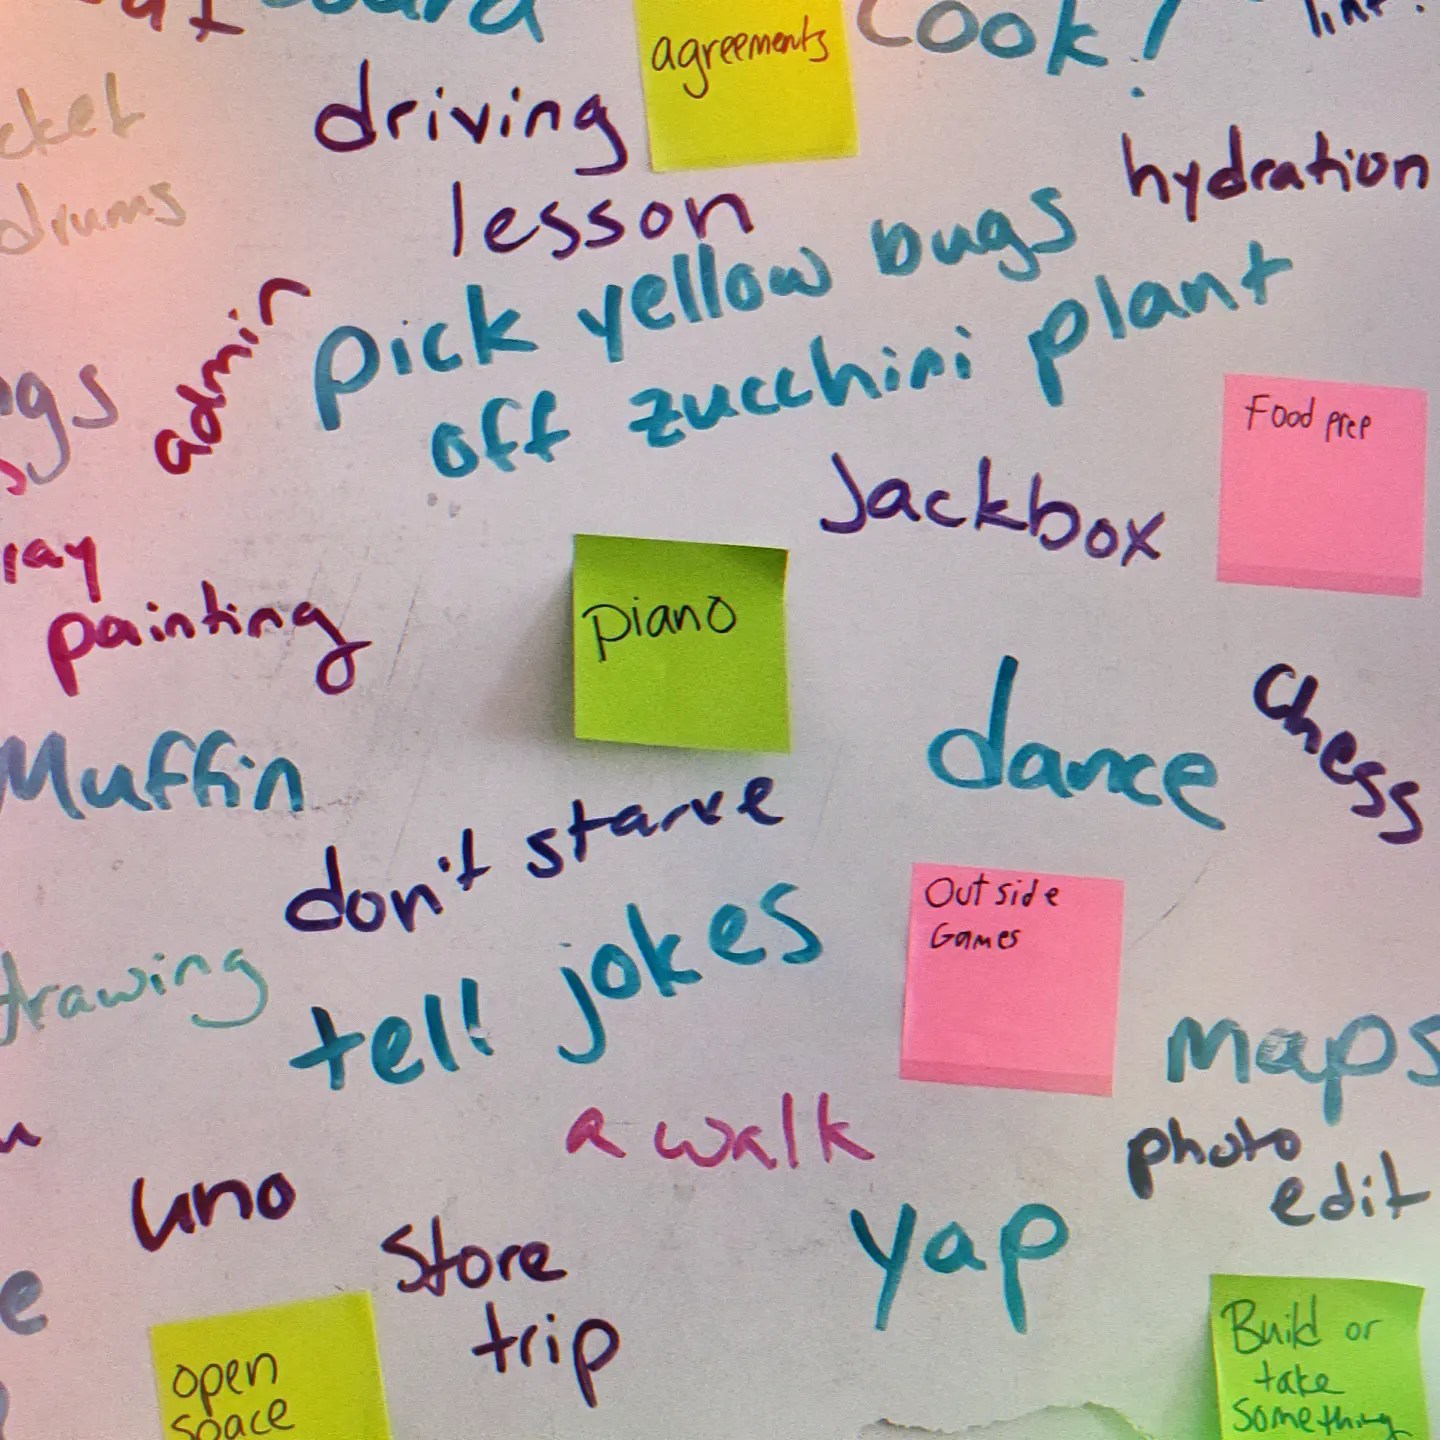 cook!
agreements
driving
lesson
hydration
drums
pick yellow bugs
off zucchini plant
admin
Food prep
Jackbox
painting
piano
Chess
dance
Muffin
don't starve
Outside
Games
tell jokes
drawing
maps
a walk
photo
edit
uno
yap
Store
trip
open
space
Build or
take
something